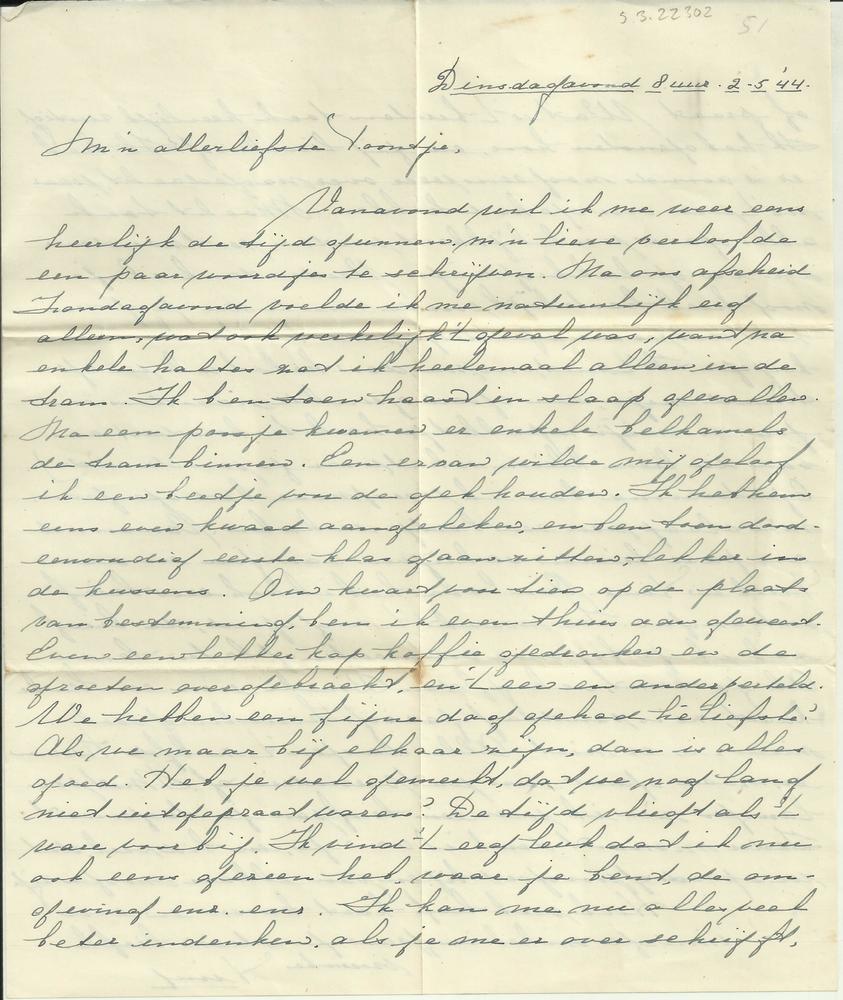 53.22302 51
Dinsdagavond 8 uur. 2-5 '44.
M'n allerliefste Toontje,
Vanavond wil ik me weer eens
heerlijk de tijd gunnen, m'n lieve verloofde
een paar woordjes te schrijven. Na ons afscheid
Zondagavond voelde ik me natuurlijk erg
alleen, wat ook werkelijk 't geval was, want na
enkele haltes zat ik heelemaal alleen in de
tram. Ik ben toen haast in slaap gevallen.
Na een poosje kwamen er enkele belhamels
de tram binnen. Een ervan wilde mij geloof
ik een beetje voor de gek houden. Ik heb hem
eens even kwaad aangekeken, en ben toen dood-
eenvoudig eerste klas gaan zitten, lekker in
de kussens. Om kwart voor tien op de plaats
van bestemming, ben ik even thuis aan geweest.
Even een lekker kop koffie gedronken en de
groeten overgebracht, en 't een en ander verteld.
We hebben een fijne dag gehad hè liefste?
Als we maar bij elkaar zijn, dan is alles
goed. Heb je wel gemerkt, dat we nog lang
niet uitgepraat waren? De tijd vliegt als 't
ware voorbij. Ik vind 't erg leuk dat ik nu
ook eens gezien heb, waar je bent, de om-
geving enz. enz. Ik kan me nu alles veel
beter indenken, als je me er over schrijft,